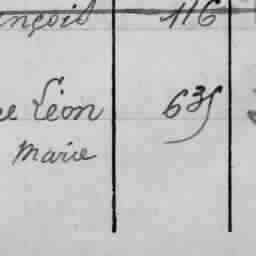 ançois 116
ce Léon 635
Marie